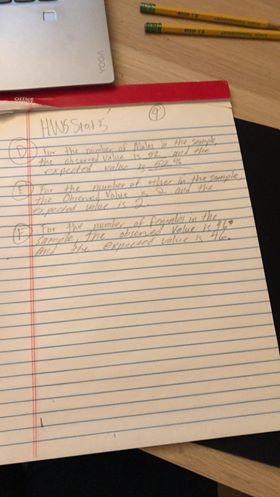 YOGA
Office
9
HW5 Stats
D For the number of Males in the sample,
the observed value is and the
expected value is
E For the number of other in the sample
the Observed Value is 2 and the
expected value is 2.
F For the number of Females in the
sample, the observed value is 46
and the expected value is 46.